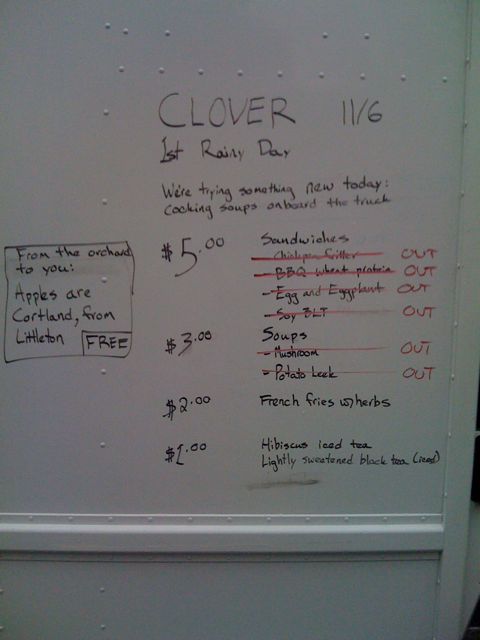 CLOVER 11/6
1st Rainy Day
We're trying something new today:
cooking soups onboard the truck
From the orchard
to you:
Apples are
Cortland, from
Littleton FREE
$5.00 Sandwiches
- Chickpea fritter OUT
- BBQ wheat protein OUT
- Egg and Eggplant OUT
- Soy BLT OUT
$3.00 Soups
- Mushroom OUT
- Potato Leek OUT
$2.00 French fries w/herbs
$1.00 Hibiscus iced tea
Lightly sweetened black tea (iced)